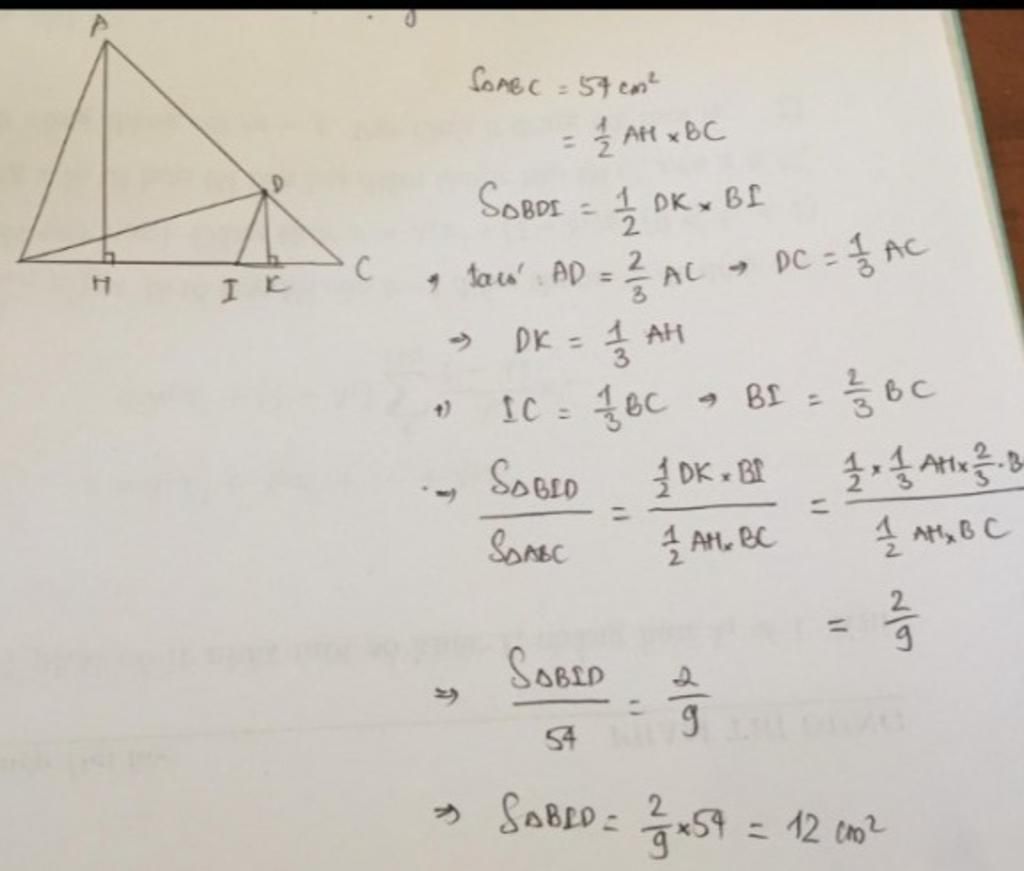 A
D
H
I
K
C
SΔABC = 54 cm²
= 1/2 AH × BC
SΔBDI = 1/2 DK × BI
AD = 2/3 AC → DC = 1/3 AC
⇒ DK = 1/3 AH
+) IC = 1/3 BC → BI = 2/3 BC
→ SΔBID / SΔABC = (1/2 DK × BI) / (1/2 AH × BC) = (1/2 × 1/3 AH × 2/3 · B) / (1/2 AH × BC)
= 2/9
⇒ SΔBID / 54 = 2/9
⇒ SΔBID = 2/9 × 54 = 12 cm²